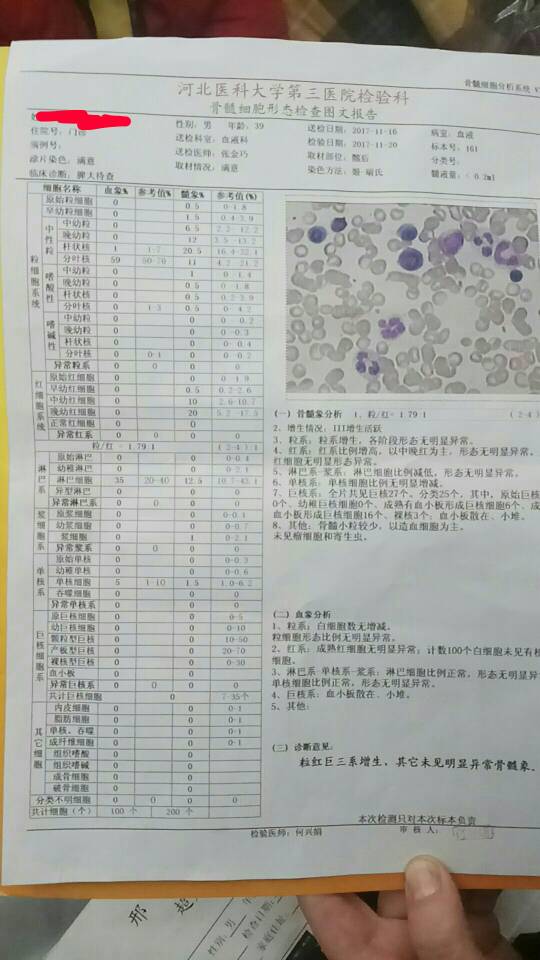 骨髓细胞分析系统 V
河北医科大学第三医院检验科
骨髓细胞形态检查图文报告
性别：男 年龄：39 送检日期：2017-11-16 病室：血液
住院号：门诊 送检科室：血液科 检验日期：2017-11-20 标本号：161
病例号： 送检医师：张金巧 取材部位：髂后 分类号：
涂片染色：满意 取材情况：满意 染色方法：姬-瑞氏 髓液量：< 0.2ml
临床诊断：脾大待查
细胞名称 血象% 参考值% 髓象% 参考值(%)
粒细胞系统
原始粒细胞 0 0.5 0-1.8
早幼粒细胞 0 1.5 0.4-3.9
中性粒
中幼粒 0 6.5 2.2-12.2
晚幼粒 0 12 3.5-13.2
杆状核 1 1-7 20.5 16.4-32.1
分叶核 59 50-70 11 4.2-21.2
嗜酸性
中幼粒 0 1 0-1.4
晚幼粒 0 0.5 0-1.8
杆状核 0 0.5 0.2-3.9
分叶核 0 1-3 0.5 0-4.2
嗜碱性
中幼粒 0 0 0-0.2
晚幼粒 0 0 0-0.3
杆状核 0 0 0-0.4
分叶核 0 0-1 0 0-0.2
异常粒系 0 0 0 0
红细胞系统
原始红细胞 0 0 0-1.9
早幼红细胞 0 0.5 0.2-2.6
中幼红细胞 0 10 2.6-10.7
晚幼红细胞 0 20 5.2-17.5
正常红细胞 0 0
异常红系 0 0 0 0
粒/红 = 1.79:1 (2-4):1
淋巴系
原始淋巴 0 0 0-0.4
幼稚淋巴 0 0 0-2.1
淋巴细胞 35 20-40 12.5 10.7-43.1
异型淋巴 0 0
异常淋巴系 0 0 0 0
浆细胞系
原浆细胞 0 0 0-0.1
幼浆细胞 0 0 0-0.7
浆细胞 0 1 0-2.1
异常浆系 0 0 0 0
单核系
原始单核 0 0 0-0.3
幼稚单核 0 0 0-0.6
单核细胞 5 1-10 1.5 1.0-6.2
吞噬细胞 0 0 0
异常单核系 0 0 0 0
巨核细胞系
原巨核细胞 0 0 0-5
幼巨核细胞 0 0 0-10
颗粒型巨核 0 0 10-50
产板型巨核 0 0 20-70
裸核型巨核 0 0 0-30
血小板 0 0
异常巨核系 0 0 0 0
共计巨核细胞 0 7-35个
其它细胞
内皮细胞 0 0 0-1
脂肪细胞 0 0 0-1
单核、吞噬 0 0 0-1
成纤维细胞 0 0 0-1
组织嗜酸 0 0
组织嗜碱 0 0
成骨细胞 0 0
破骨细胞 0 0
分类不明细胞 0 0 0 0
共计细胞（个） 100 个 200 个
（一）骨髓象分析 1、粒/红= 1.79:1 (2-4):1
2、增生情况：III增生活跃
3、粒系：粒系增生，各阶段形态无明显异常。
4、红系：红系比例增高，以中晚红为主，形态无明显异常。
红细胞无明显形态异常。
5、淋巴系-浆系：淋巴细胞比例减低，形态无明显异常。
6、单核系：单核系细胞比例无明显增减。
7、巨核系：全片共见巨核27个。分类25个，其中，原始巨核
0个、幼稚巨核细胞0个、成熟有血小板形成巨核细胞6个、成
血小板形成巨核细胞16个、裸核3个。血小板散在、小堆。
8、其他：骨髓小粒较少，以造血细胞为主。
未见瘤细胞和寄生虫。
（二）血象分析
1、粒系：白细胞数无增减。
粒细胞形态比例无明显异常。
2、红系：成熟红细胞无明显异常；计数100个白细胞未见有核
细胞。
3、淋巴系-单核系-浆系：淋巴细胞比例正常，形态无明显异
单核细胞比例正常，形态无明显异常。
4、巨核系：血小板散在、小堆。
5、其他：
（三）诊断意见：
粒红巨三系增生，其它未见明显异常骨髓象。
本次检测只对本次标本负责
检验医师：何兴娟 审 核 人：
邢 超
性别：男
检查日期：
家庭住址：